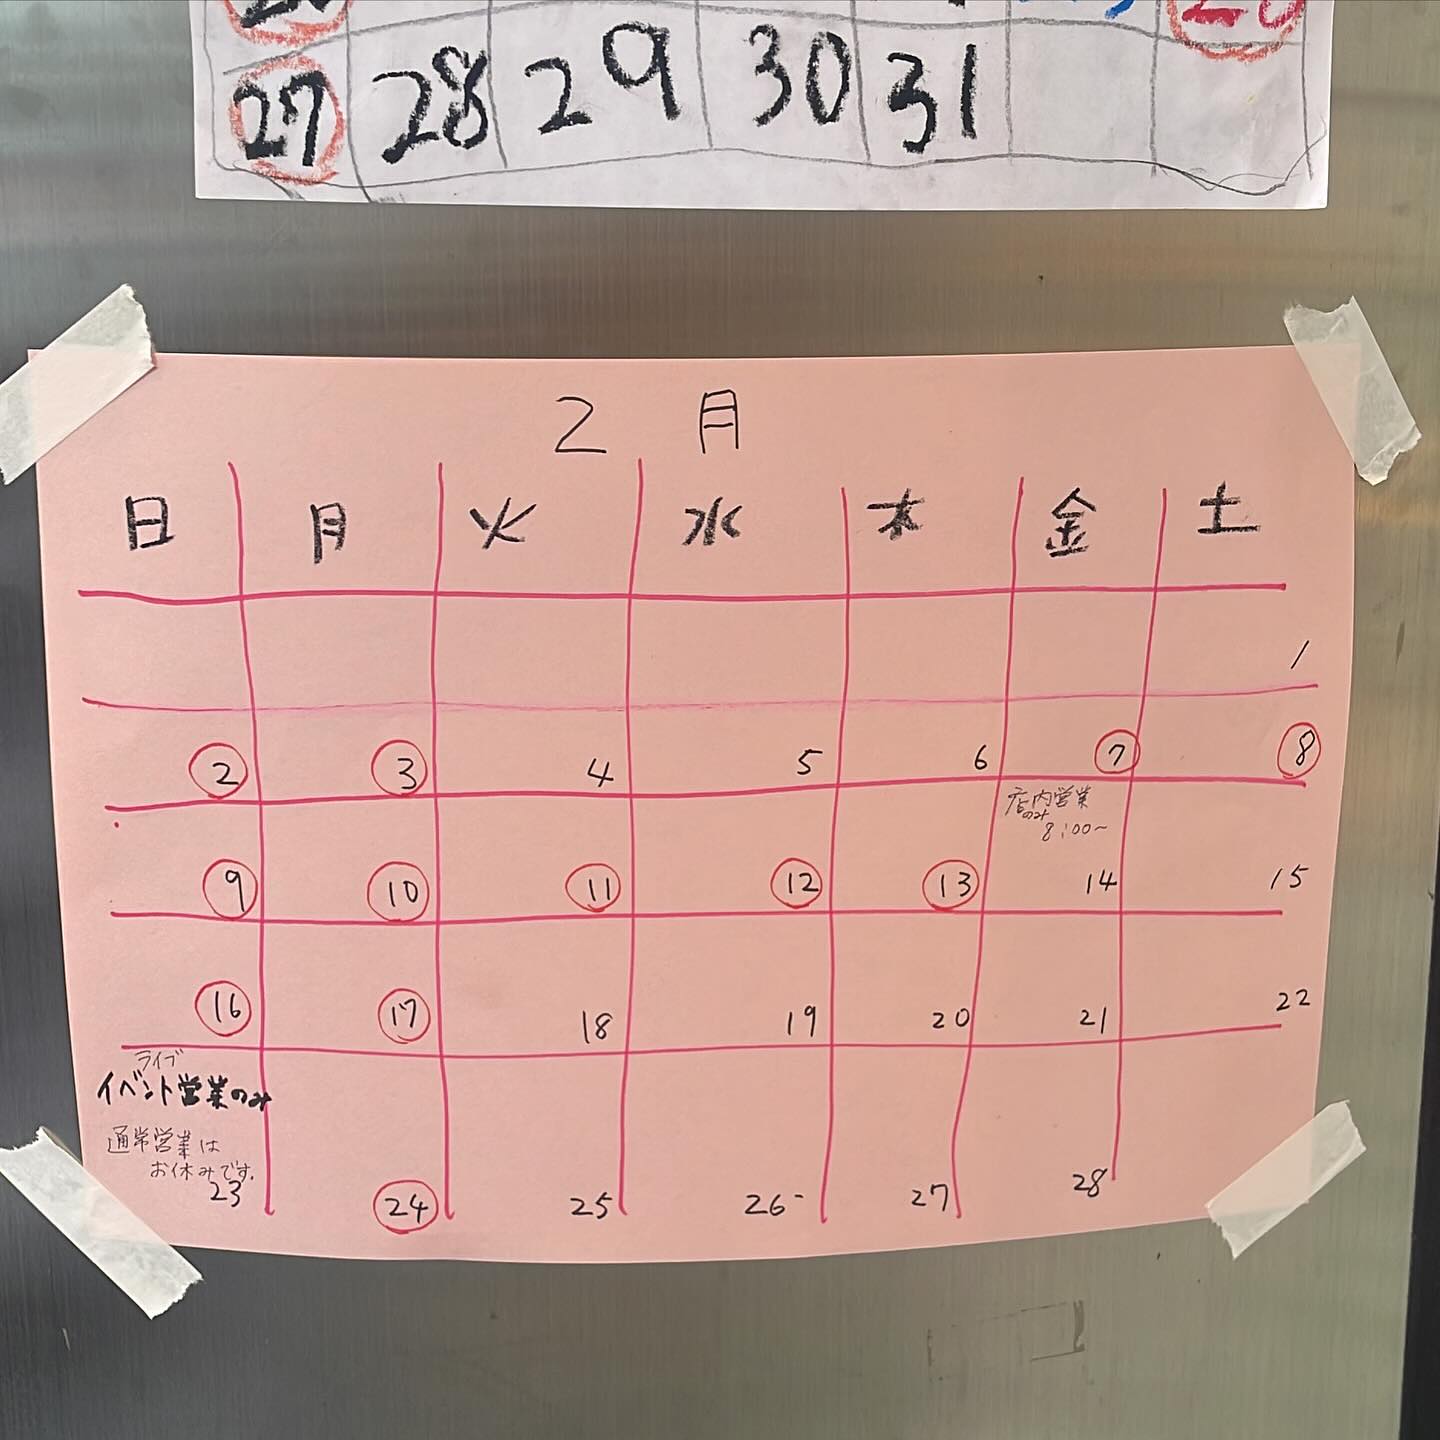 27 28 29 30 31
2月
日 月 火 水 木 金 土
1
2 3 4 5 6 7 8
店内営業
のみ
8:00〜
9 10 11 12 13 14 15
16 17 18 19 20 21 22
ライブ
イベント営業のみ
通常営業は
お休みです.
23 24 25 26 27 28